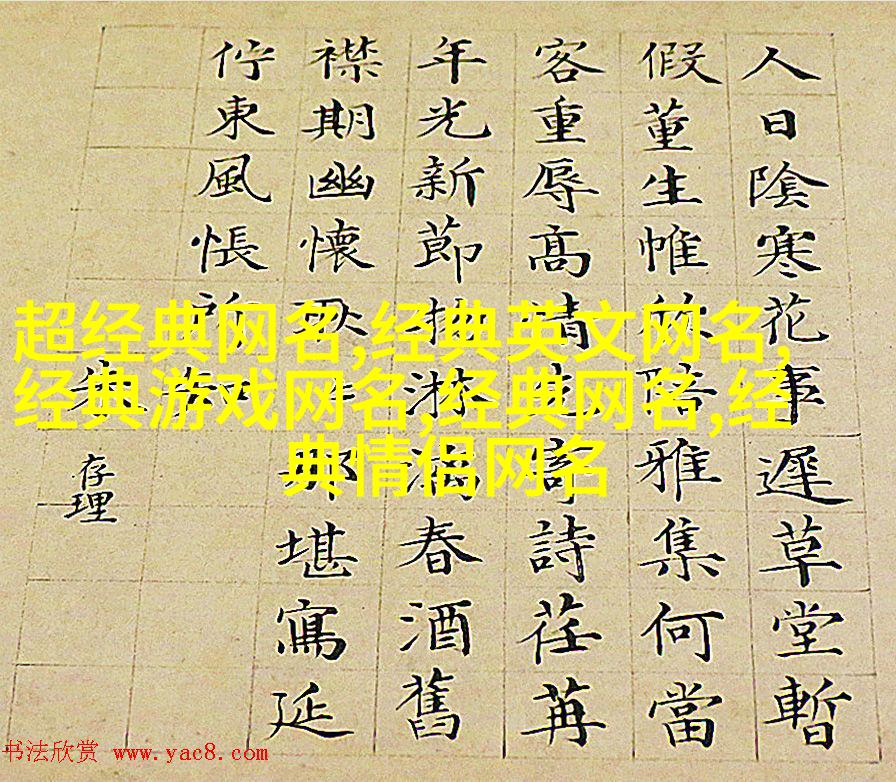 人日陰寒花事遲草堂暫
假董生帷陪雅集何當
客重辱高情先寄詩荏苒
年光新節物淋漓春酒舊
襟期幽懷那堪寫延
佇東風悵所知
存理
超经典网名,经典英文网名,
经典游戏网名,经典网名,经
典情侣网名
书法欣赏 www.yac8.com